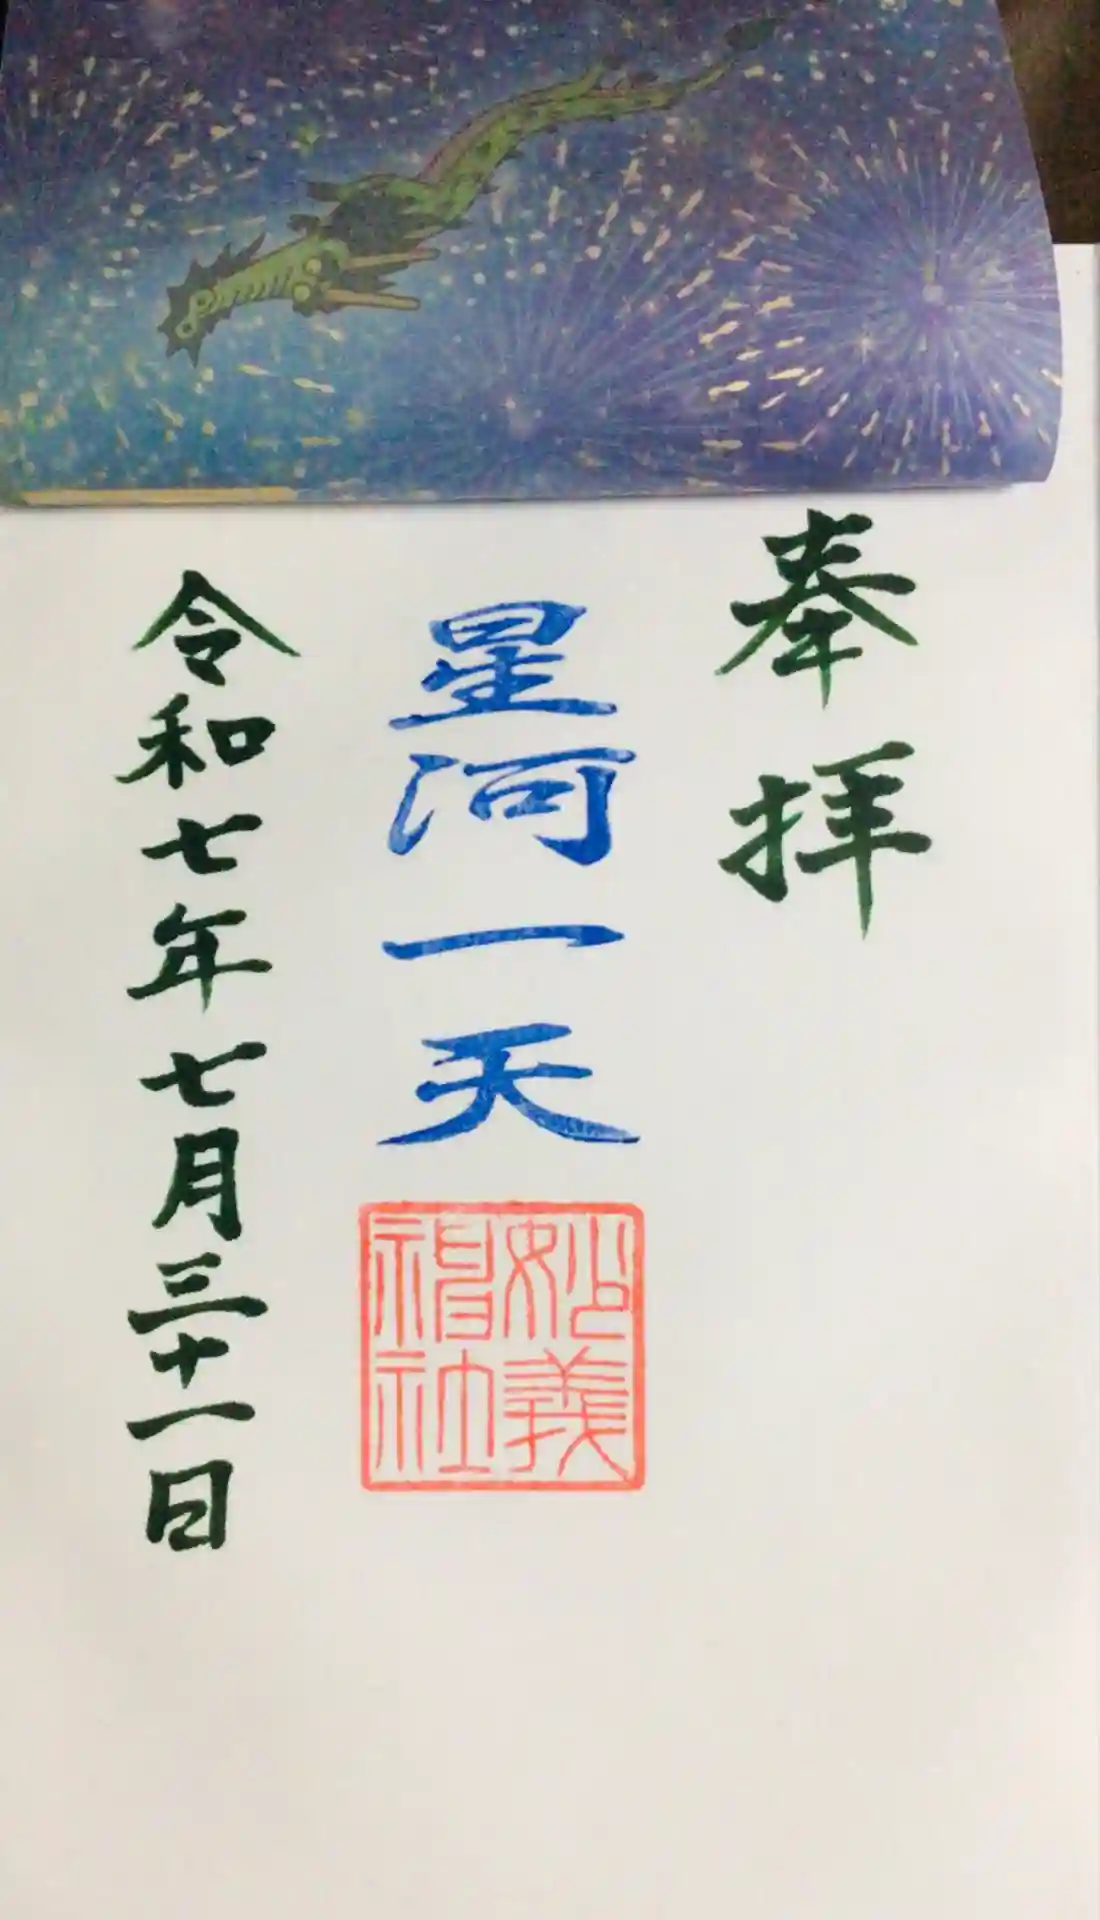 奉拝
星河一天
妙義神社
令和七年七月三十一日